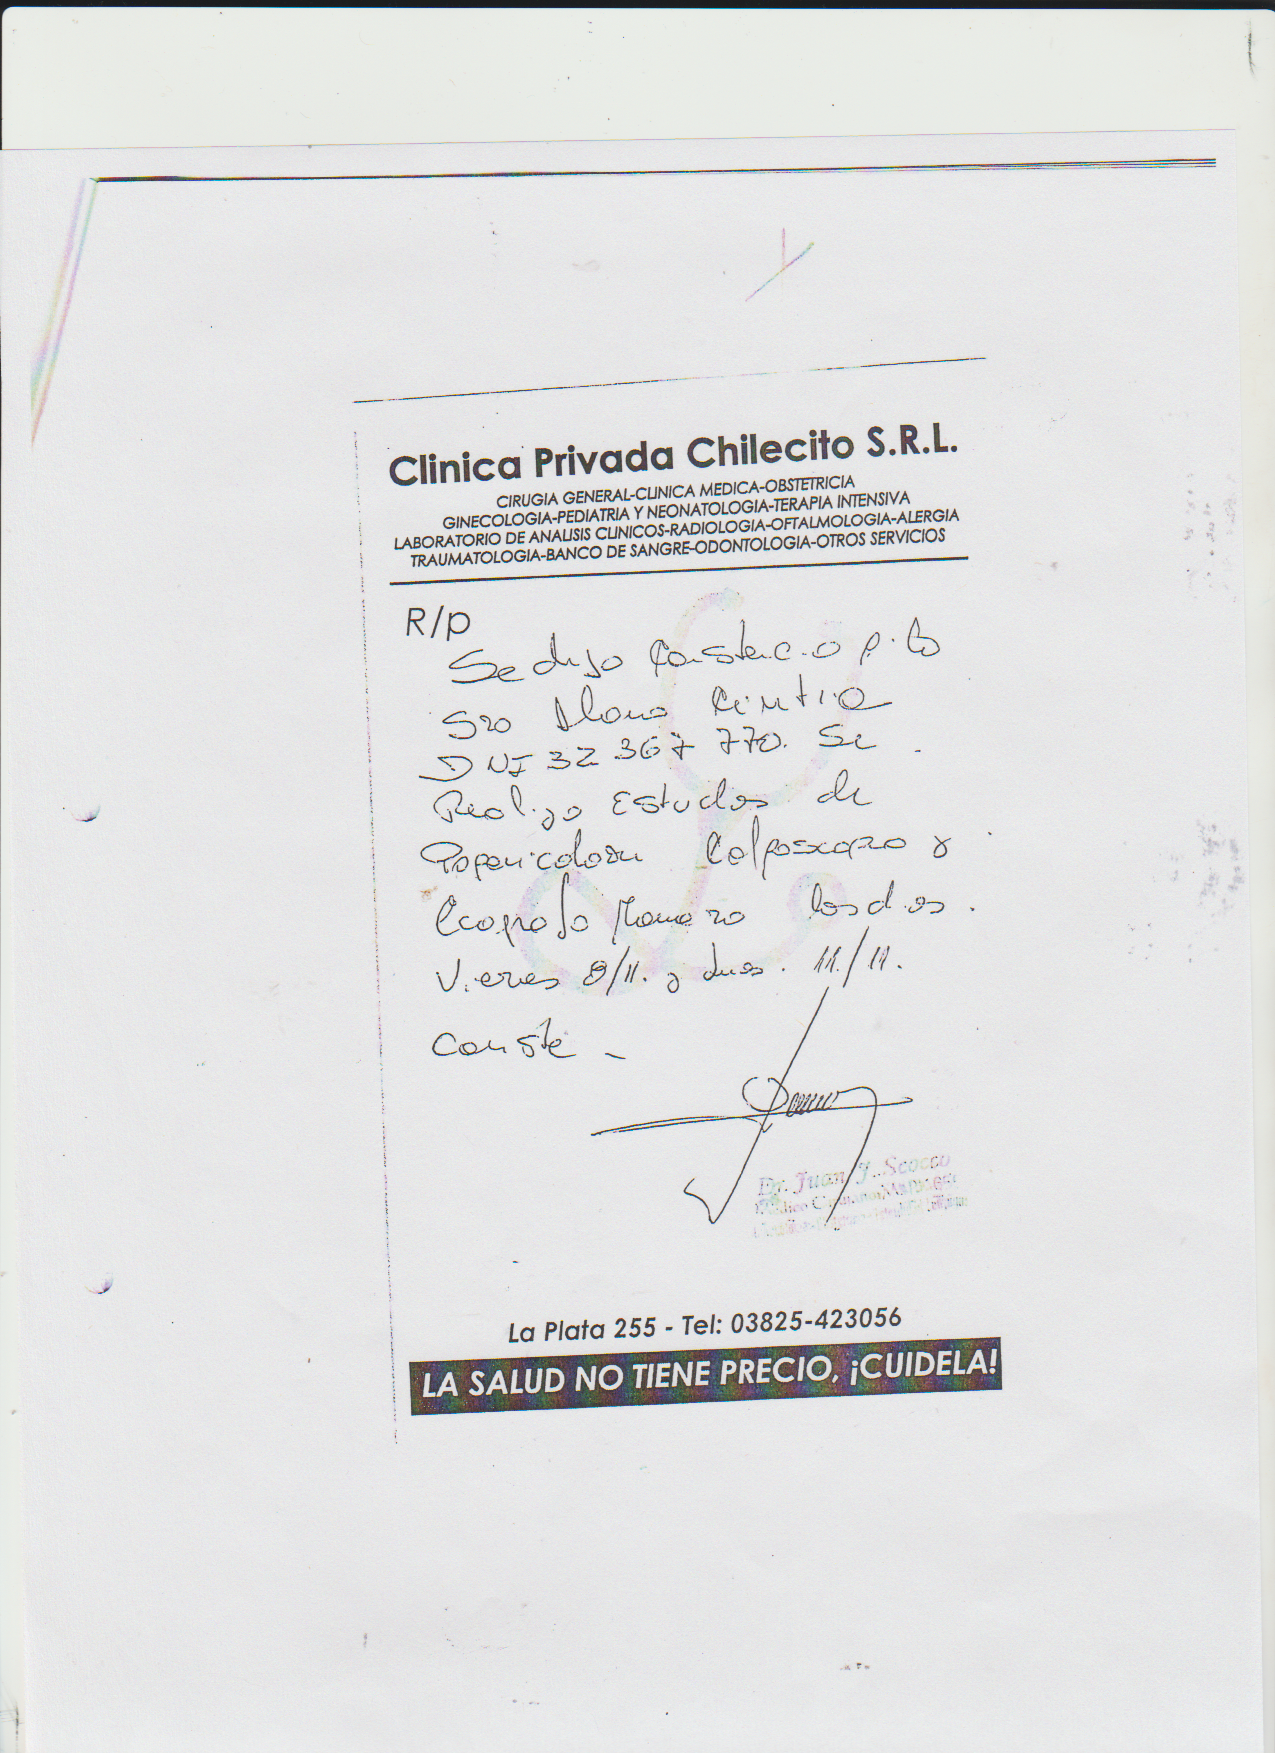 Clinica Privada Chilecito S.R.L.
CIRUGIA GENERAL-CLINICA MEDICA-OBSTETRICIA
GINECOLOGIA-PEDIATRIA Y NEONATOLOGIA-TERAPIA INTENSIVA
LABORATORIO DE ANALISIS CLINICOS-RADIOLOGIA-OFTALMOLOGIA-ALERGIA
TRAUMATOLOGIA-BANCO DE SANGRE-ODONTOLOGIA-OTROS SERVICIOS
R/p
Se dejo Constancia p. la
Sra Cintia
DNI 32 367 770. Se
Realizo Estudios de
Papanicolau Colposcopia y
Ecografia Mamaria los dias
Viernes 8/11. y lunes. 11/11.
Conste -
Dr. Juan J. Scocco
La Plata 255 - Tel: 03825-423056
LA SALUD NO TIENE PRECIO, ¡CUIDELA!